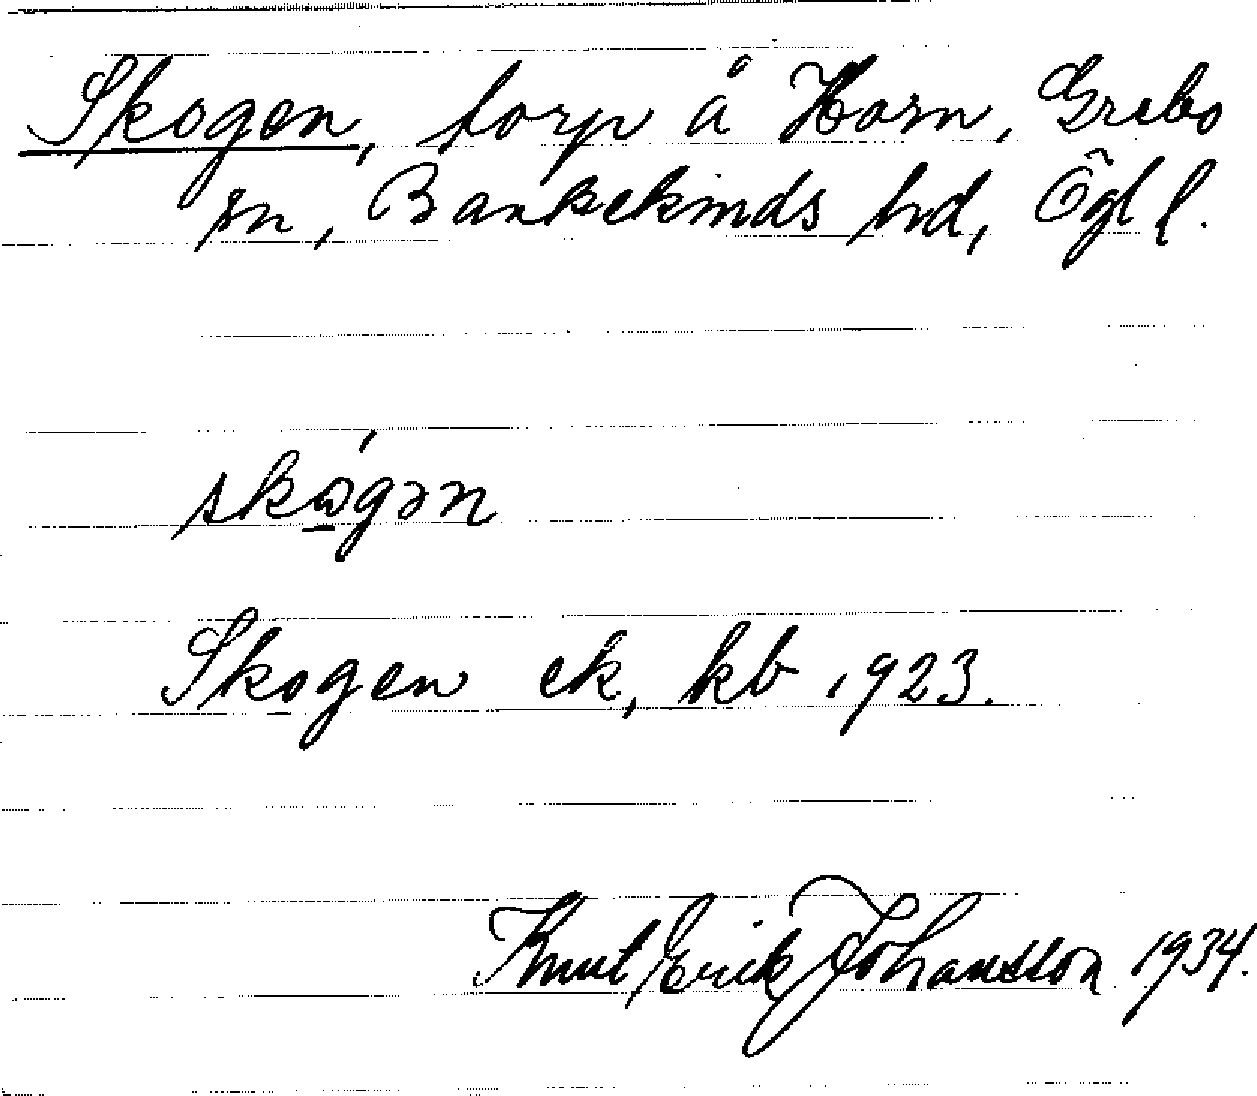 Skogen, torp å Horn, Grebo
sn, Bankekinds hd, Ögl l.
skógən
Skogen ek, kb 1923.
Knut Erik Johansson 1934.